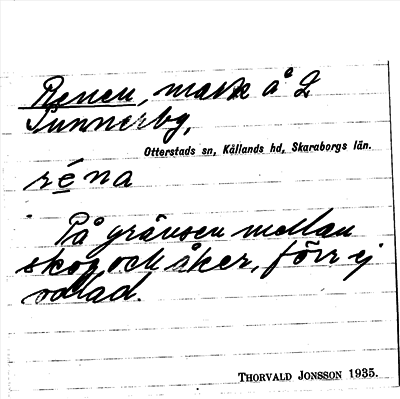 Renen, mark å 2
Sunnerby,
Otterstads sn, Kållands hd, Skaraborgs län.
réna
På gränsen mellan
skog och åker, förr ej
odlad.
THORVALD JONSSON 1935.